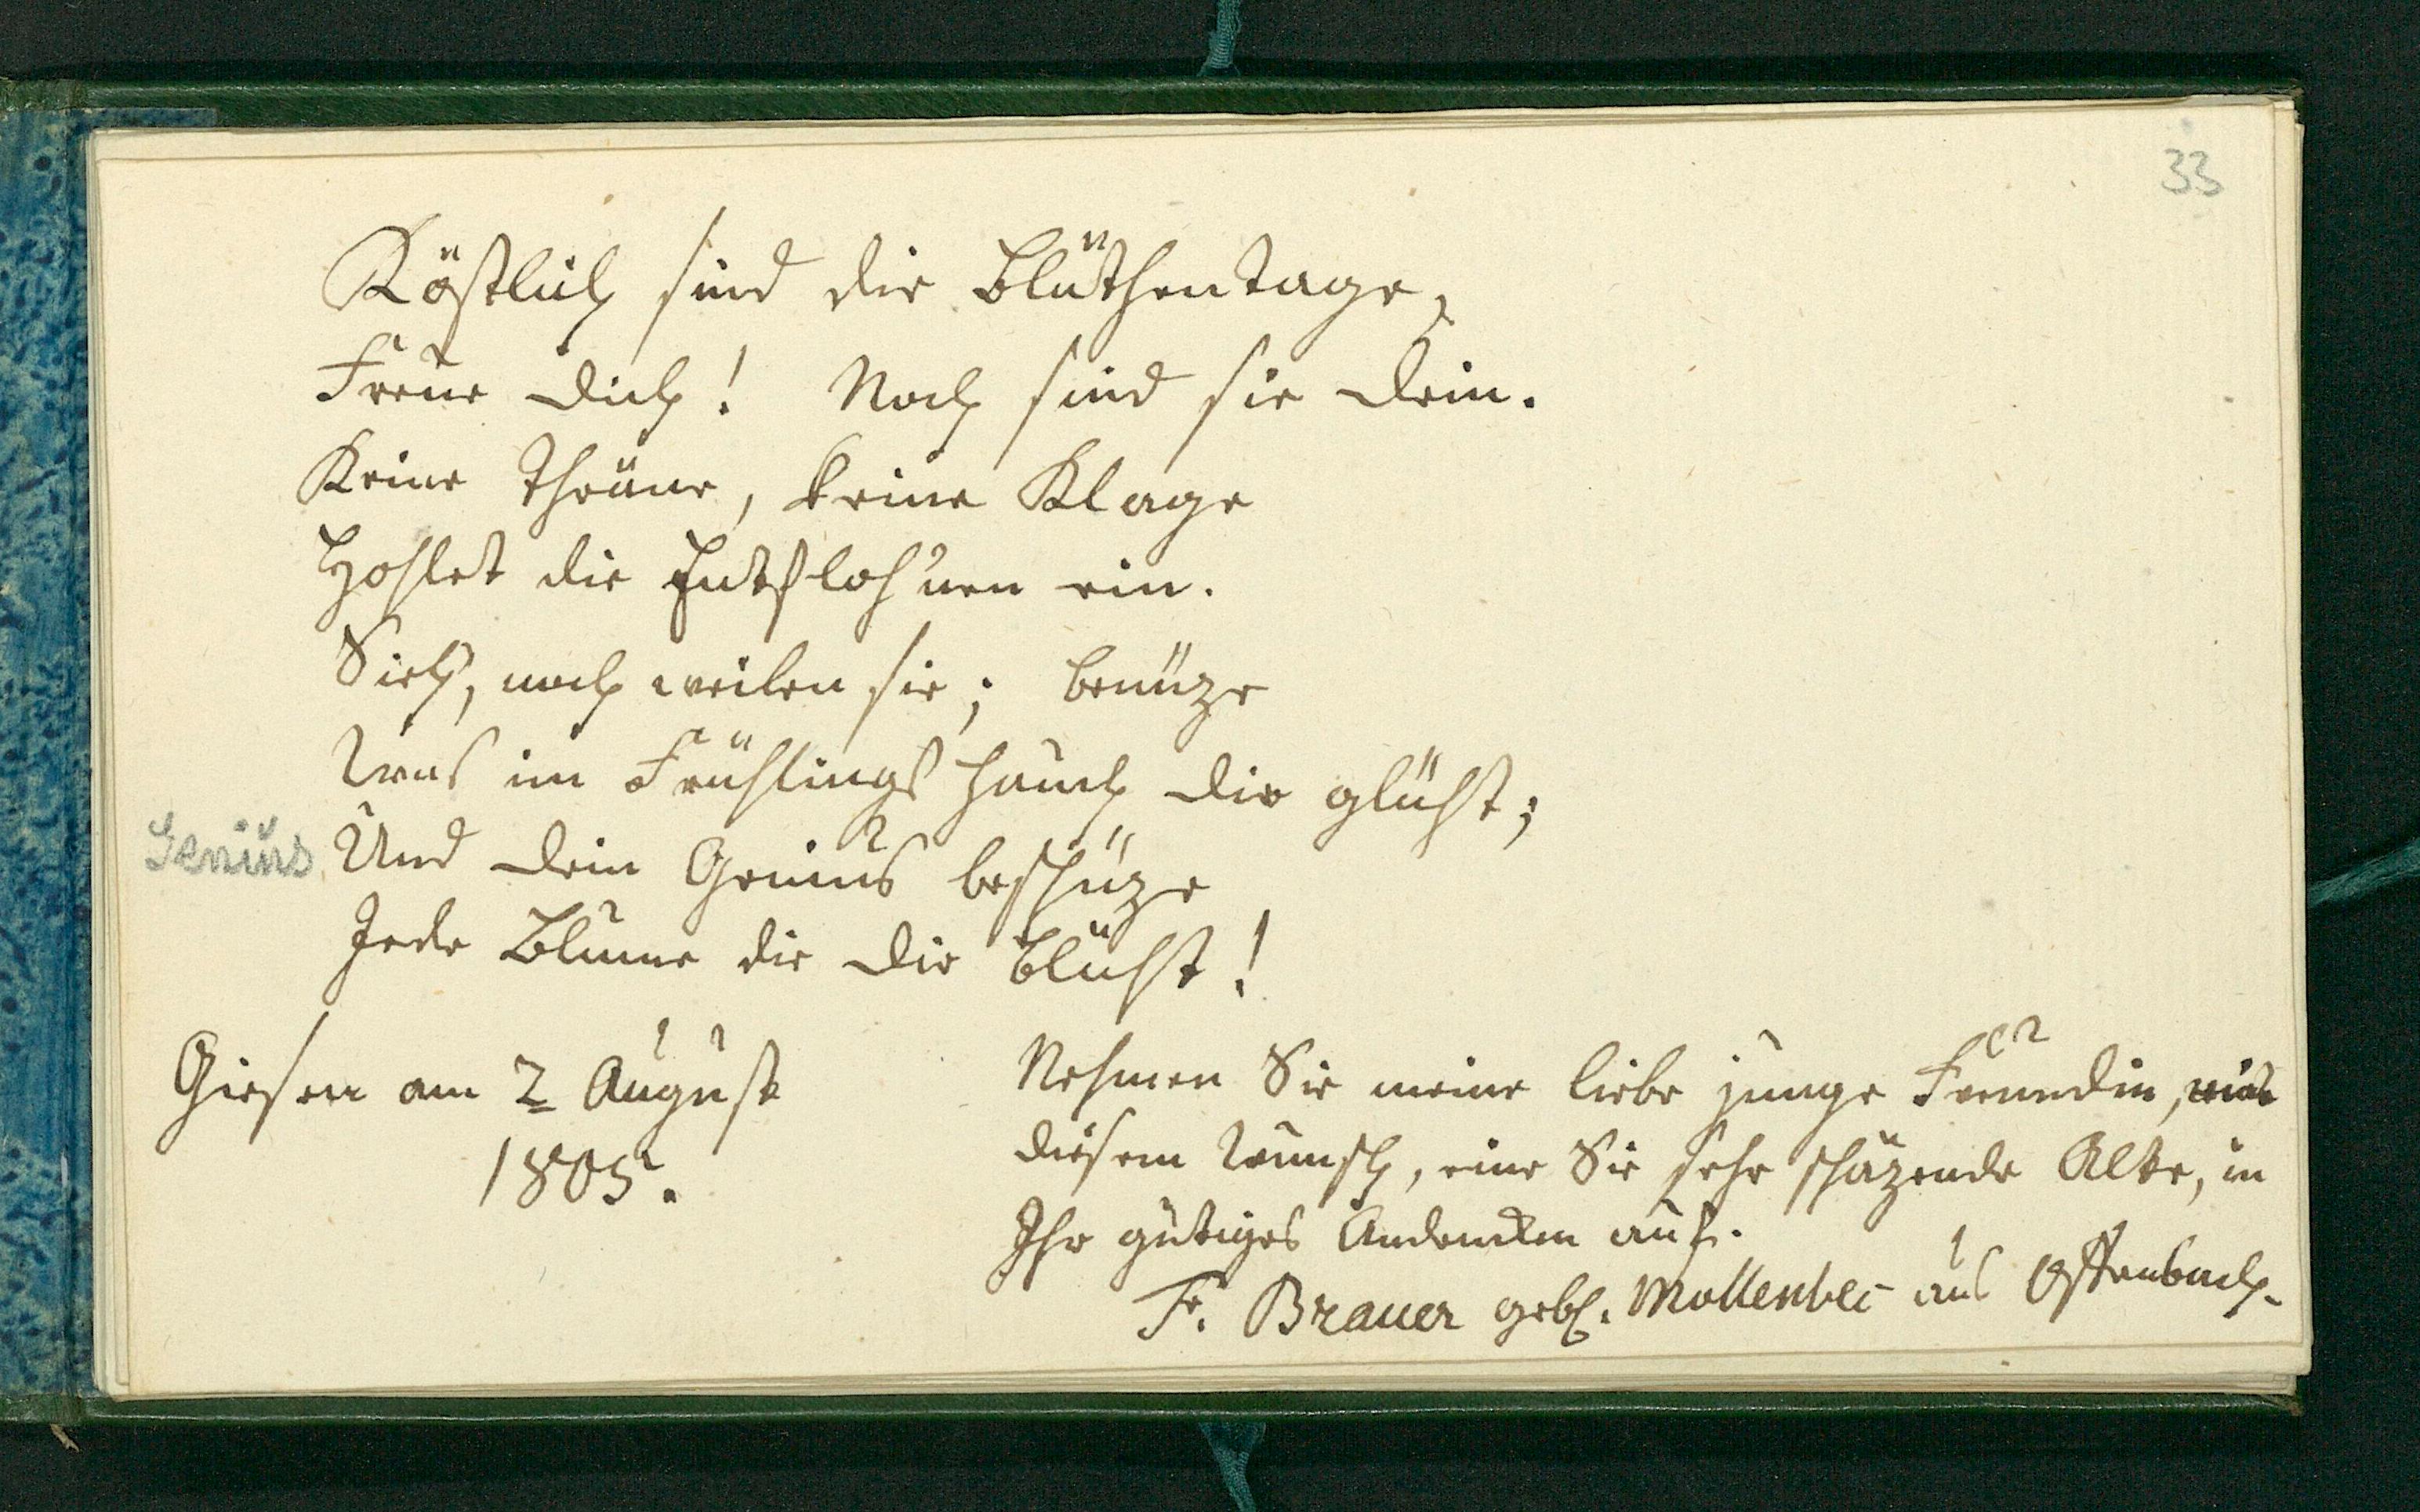 33
Köstlich sind die Blüthentage,
Freue Dich! Noch sind sie Dein.
Keine Thräne, keine Klage
Hohlet die Entfloh'nen ein.
Sieh, noch weilen sie; benüze
Was im Frühlings hauch Dir glüht;
Genius
Und Dein Genius beschüze
Jede Blume die Dir blüht!
Giesen am 2 August
1805.
Nehmen Sie meine liebe junge Freundin, mit
diesem Wunsch, eine Sie sehr schäzende Alte, in
Ihr gütiges Andencken auf.
Fr. Brauer gebh. Mollenbec aus Offenbach.